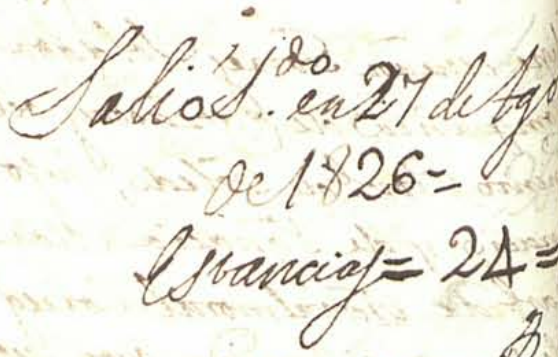 Salió S.do en 27 de Ag
de 1826=
Estancias= 24=